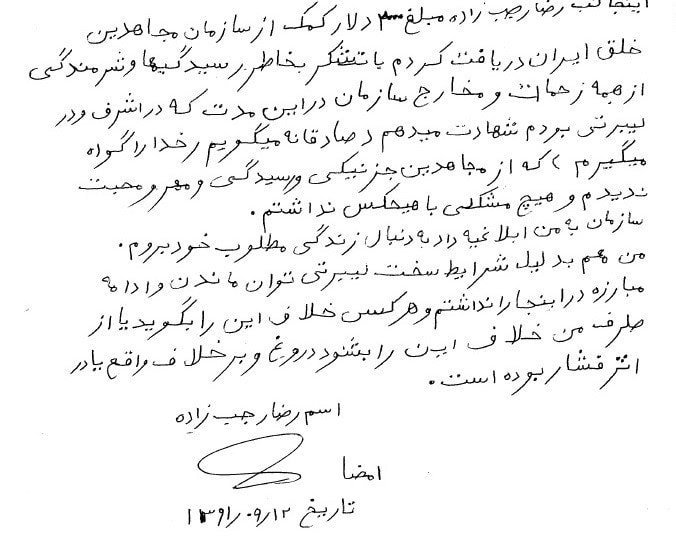 اینجانب رضا رجب زاده مبلغ ۳۰۰ دلار کمک از سازمان مجاهدین
خلق ایران دریافت کردم با تشکر بخاطر رسیدگیها و شرمندگی
از همه زحمات و مخارج سازمان در این مدت که در اشرف و در
لیبرتی بودم شهادت میدهم و صادقانه میگویم (خدا را گواه
میگیرم) که از مجاهدین جز نیکی و رسیدگی و مهر و محبت
ندیدم و هیچ مشکلی با هیچکس نداشتم.
سازمان به من ابلاغیه داد به دنبال زندگی مطلوب خود بروم.
من هم بدلیل شرایط سخت لیبرتی توان ماندن و ادامه
مبارزه در اینجا را نداشتم و هر کس خلاف این را بگوید یا از
طرف من خلاف این را بشنود دروغ و بر خلاف واقع یا در
اثر فشار بوده است.
اسم رضا رجب زاده
امضا
تاریخ ۱۳۹۱/۰۹/۱۲